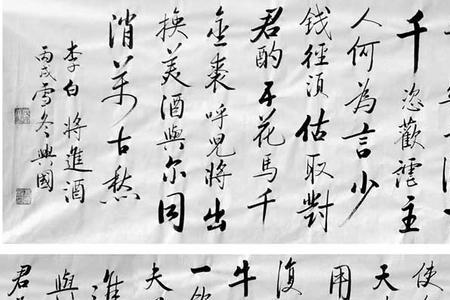 千恣歡謔主
人何為言少
錢徑須估取對
君酌五花馬千
金裘呼兒將出
換美酒與尔同
消萬古愁
李白將進酒
丙戌雪冬興國
使
天
用
復
牛
一
夫
進
與
君